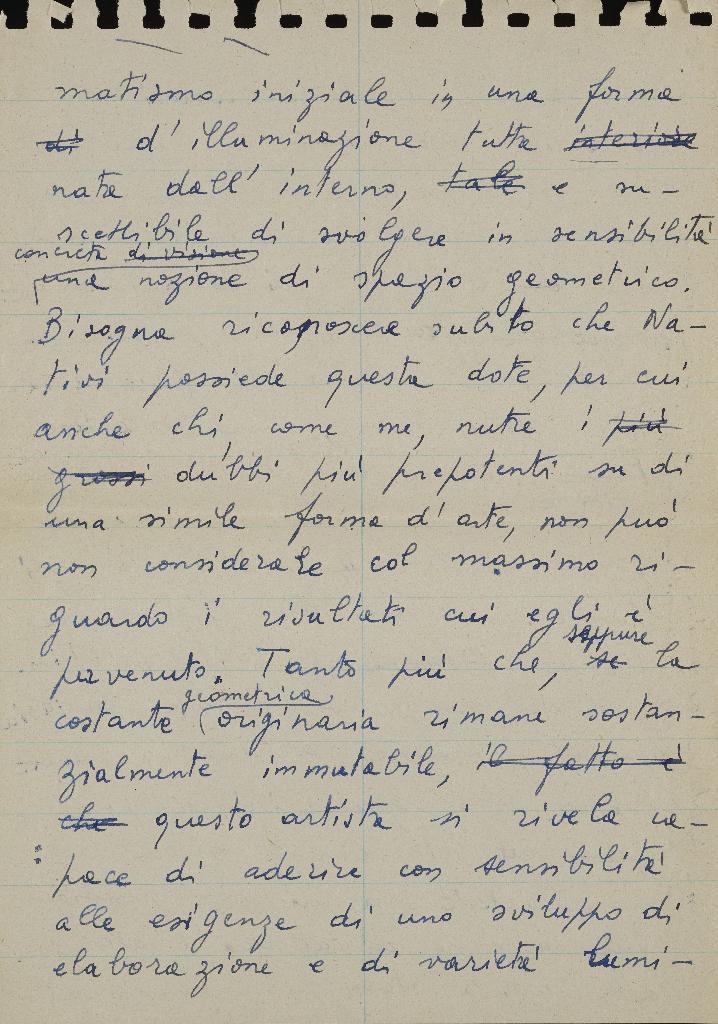 matismo iniziale in una forma
di d'illuminazione tutta interiore
nata dall'interno, tale e su-
scettibile di svolgere in sensibilità
concreta di visione
una nozione di spazio geometrico.
Bisogna riconoscere subito che Na-
tivi possiede questa dote, per cui
anche chi, come me, nutre i più
grossi dubbi più prepotenti su di
una simile forma d'arte, non può
non considerare col massimo ri-
guardo i risultati cui egli è
pervenuto. Tanto più che, se seppure la
costante geometrica originaria rimane sostan-
zialmente immutabile, il fatto è
che questo artista si rivela ca-
pace di aderire con sensibilità
alle esigenze di uno sviluppo di
elaborazione e di varietà lumi-